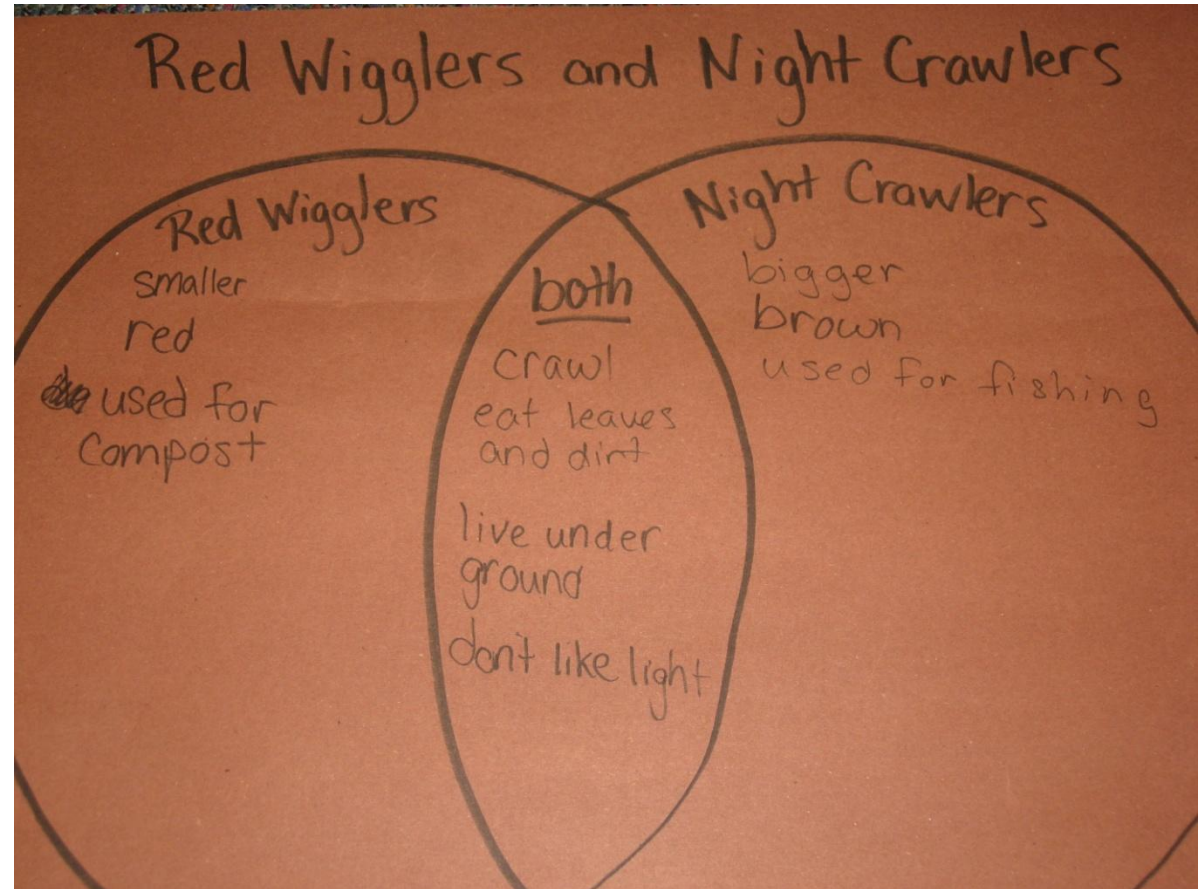 Red Wigglers and Night Crawlers
Red Wigglers
smaller
red
used for
compost
both
crawl
eat leaves
and dirt
live under
ground
don't like light
Night Crawlers
bigger
brown
used for fishing